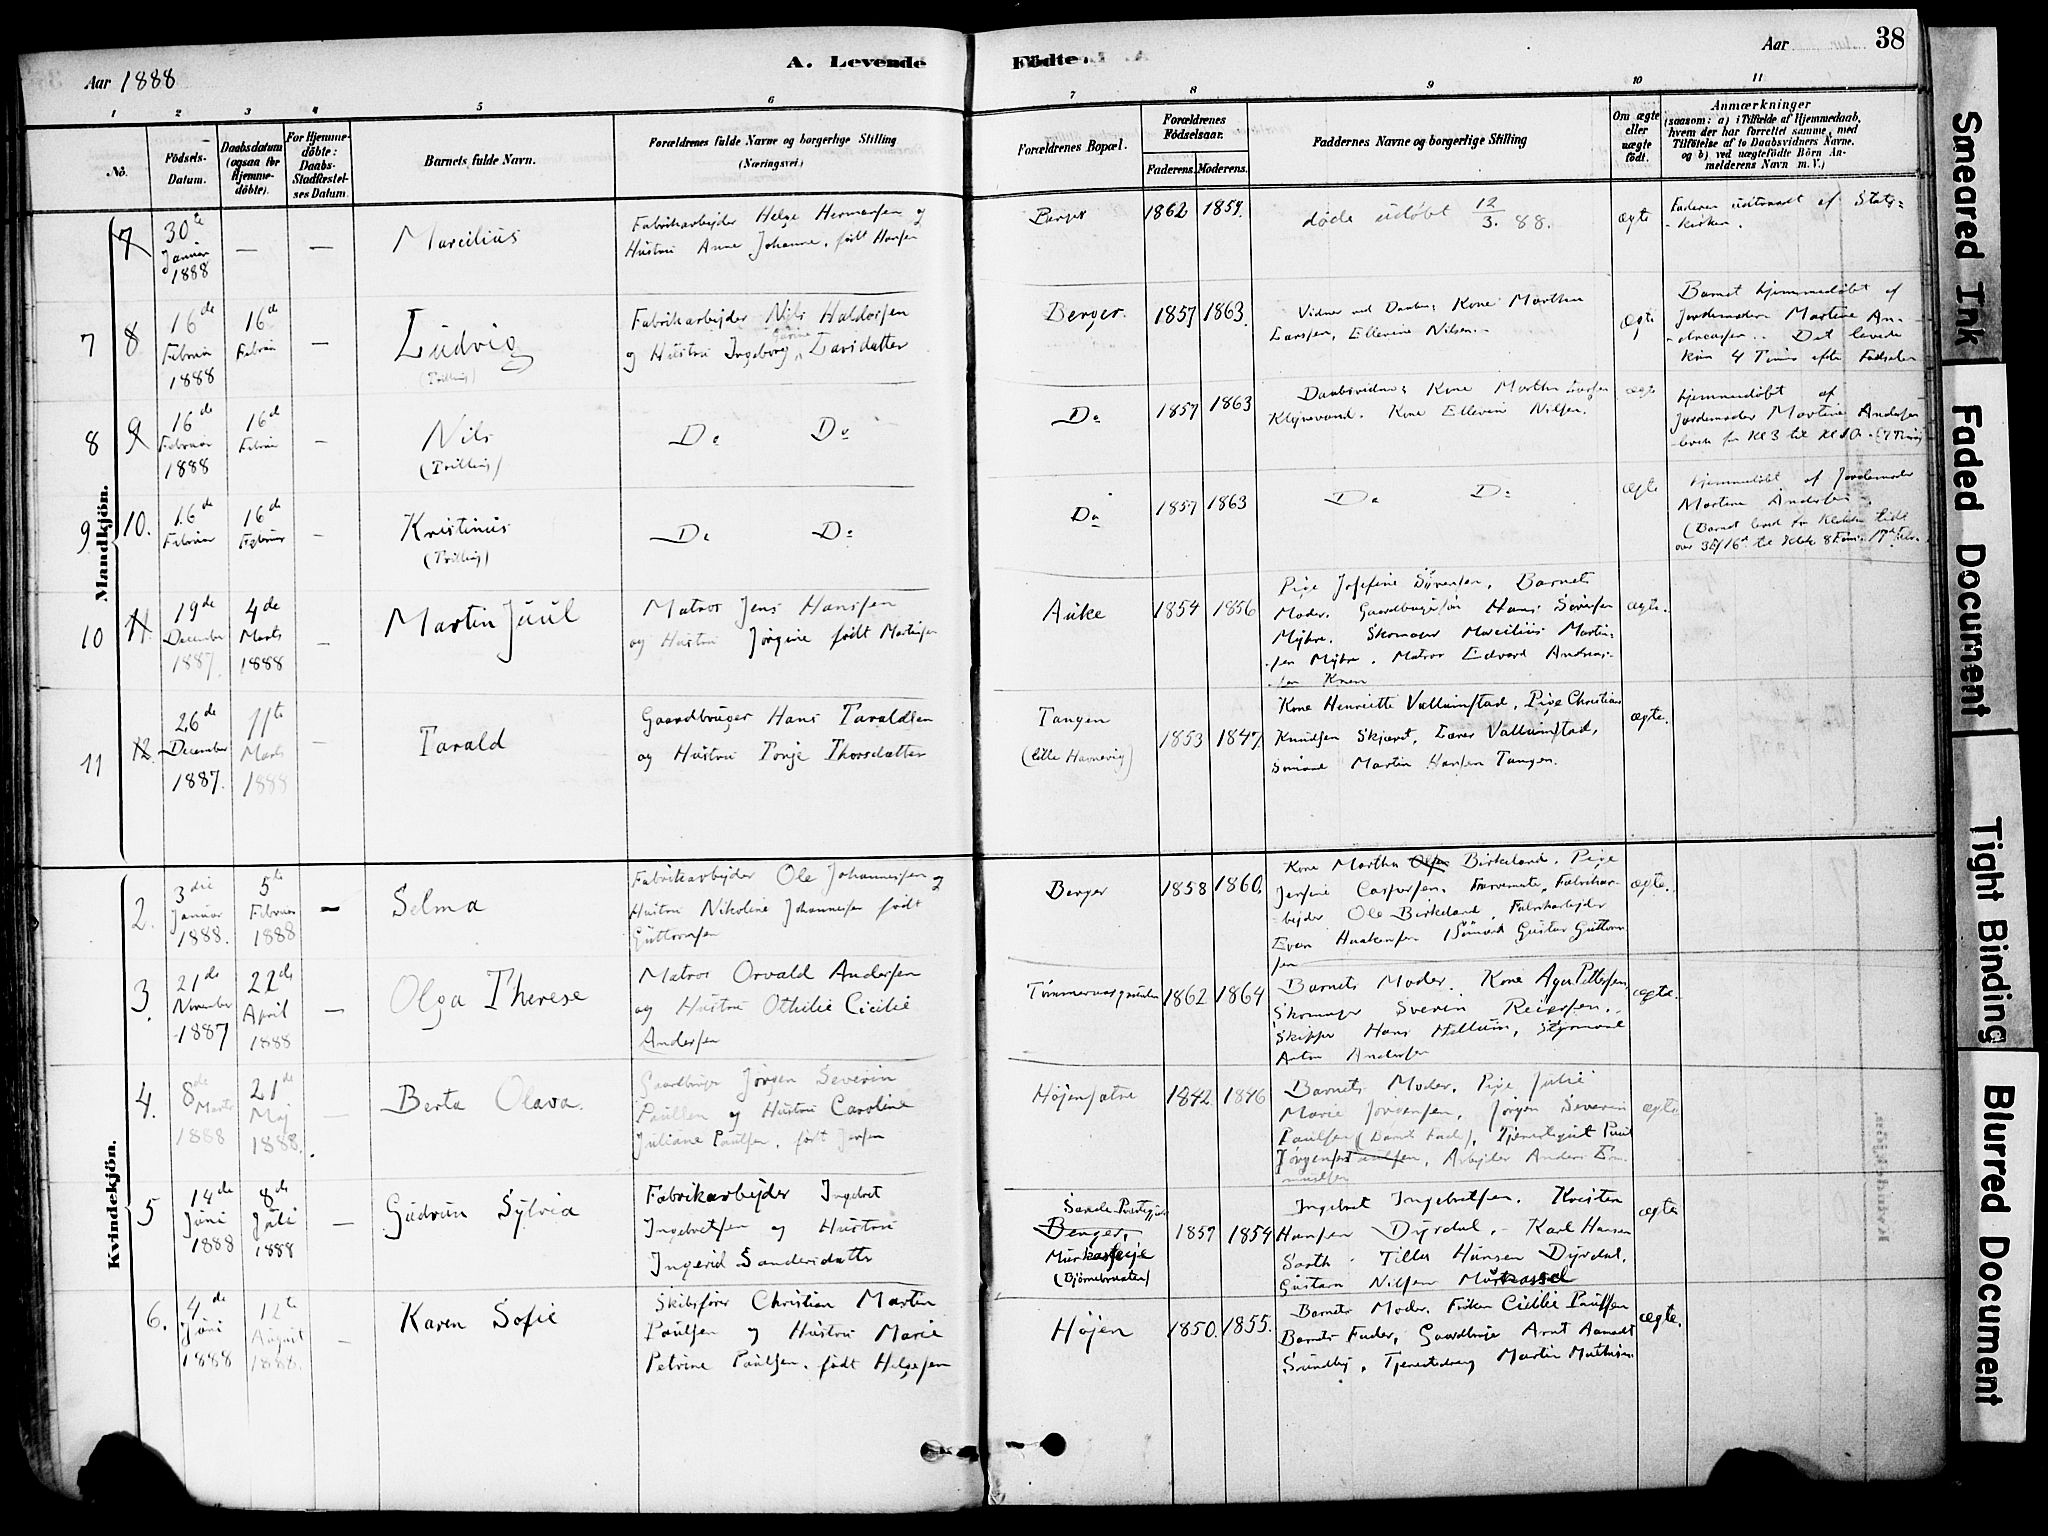 Aar 1888
A. Levende
Födte.
Aar
38
1 2 3 4 5 6
7 8 9 10 11
No.
Födsels-
Datum.
Daabsdatum
(ogsaa for
Hjemme-
döbte).
For Hjemme-
döbte:
Daabs-
Stadfæstel-
ses Datum.
Barnets fulde Navn.
Forældrenes fulde Navne og borgerlige Stilling
(Næringsvei.)
Forældrenes Bopæl.
Forældrenes
Födselsaar.
Faderens.
Moderens.
Faddernes Navne og borgerlige Stilling
Om ægte
eller
uægte
födt.
Anmærkninger
(saasom: a) i Tilfælde af Hjemmedaab,
hvem der har forrettet samme, med
Tilföielse af to Daabsvidners Navne,
og b) ved uægtefödte Börn An-
melderens Navn m. V.)
Mandkjön.
7
30te
Januar
1888
—
—
Marcilius
Fabrikarbejder Helge Hermansen og
Hustru Anne Johanne, født Hansen
Berger
1862 1859.
døde udøbt 12/3. 88.
ægte
Faderen udtraadt af Stats-
-kirken.
7 8
16de
Februar
1888
16de
Februar
—
Ludvig
(Trilling)
Fabrikarbejder Nils Haldorsen
og Hustru Ingeborg Larsdatter
Berger.
1857 1863.
Vidner ved Daaben; Kone Marthea
Larssen, Ellevine Nilsen.
ægte
Barnet hjemmedøbt af
Jordemoder Martine An-
-dreasen. Det levede
kun 4 Timer efter Fødselen
8 9
16de
Februar
1888
16de
Februar
—
Nils
(Trilling)
Do Do
Do
1857 1863
Daabsvidner Kone Marthea Larsen
Kone Ellevine Nilsen.
ægte
Hjemmedøbt af
Jordemoder Martine Andersen
levede fra Kl 3 til Kl 10. (7 Timer)
9 10.
16de
Februar
16de
Februar
—
Kristinus
(Trilling)
Do Do
Do
1857 1863
Do Do
ægte
Hjemmedøbt af Jordemoder
Martine Andersen
(Barnet leved fra Klokken lidt
over 3 til
10 11.
19de
December
1887.
4de
Marts
1888
—
Martin Juul
Matros Jens Hanssen
og Hustru Jørgine født Martinsen
Auke
1854 1856
Pige Josefine Sørensen, Barnets
Moder. Gaardbrugersøn Hans Sørensen
Myhre. Skomager Marcilius Martin-
-sen Myhre. Matros Edvard Andreas-
-sen Knem
ægte.
11 12.
26de
December
1887.
11te
Marts
1888
—
Tarald
Gaardbruger Hans Taraldsen
og Hustru Tonje Thorsdatter
Tangen
(lille Havnevig)
1853 1847.
Kone Henriette Vallumstad, Pige Christiane
Knudsen Skjæret, Lærer Vallumstad,
Sømand Martin Hansen Tangen.
ægte.
Kvindekjön.
2.
3die
Januar
1888.
5te
Februar
1888
—
Selma
Fabrikarbejder Ole Johannessen og
Hustru Nikoline Johannesen født
Guttormsen
Berger
1858 1860.
Kone Marthea Birkeland. Pige
Jensine Caspersen. Farvemester, Fabrikar-
-bejder Ole Birkeland, Fabrikarbejder
Even Haakensen, Sømand Gustav Guttorm-
sen
ægte.
3.
21de
November
1887
22de
April
1888
—
Olga Therese
Matros Orvald Andersen
og Hustru Othilie Cicilie
Andersen
1862 1864
Barnets Moder. Kone Agn. Pettersen,
Skomager Sverin Reiersen.
Skipper Hans Hellum, Styrmand
Anton Andersen
ægte.
4.
8de
Marts
1888
21de
Maj
1888.
—
Berta Olava.
Gaardbruger Jørgen Severin
Paulsen og Hustru Caroline
Juliane Paulsen, født Jensen
Højensætre
1842. 1846
Barnets Moder, Pige Julie
Marie Jørgensen, Jørgen Severin
Paulsen (Barnets Fader), Tjenestegut Paul
Jørgensen Paulsen, Arbejder Anders
ægte.
5
14de
Juni
1888
8de
Juli
1888
—
Gudrun Sylvia
Fabrikarbejder Ingebret
Ingebretsen og Hustru
Ingerid Sandersdatter
Sande Præstegjæld
Berger,
(Bjørnebraaten)
1857 1854
Ingebret Ingebretsen. Kristen
Hansen Dyrdal. Karl Hansen
Tilla Hansen Dyrdal,
Gustava Nilsen Murkassel
ægte
6.
4de
Juni
1888
12te
August
1888.
—
Karen Sofie
Skibsfører Christian Martin
Paulsen og Hustru Marie
Petrine Paulsen, født Helgesen
Højen
1850. 1855.
Barnets Moder, Frøken Cicilie Paulsen
Barnets Fader, Gaardbruger Arnt Aamodt
Sundby, Tjenestedreng Martin Mathisen
ægte.
Smeared Ink
Faded Document
Tight Binding
Blurred Document